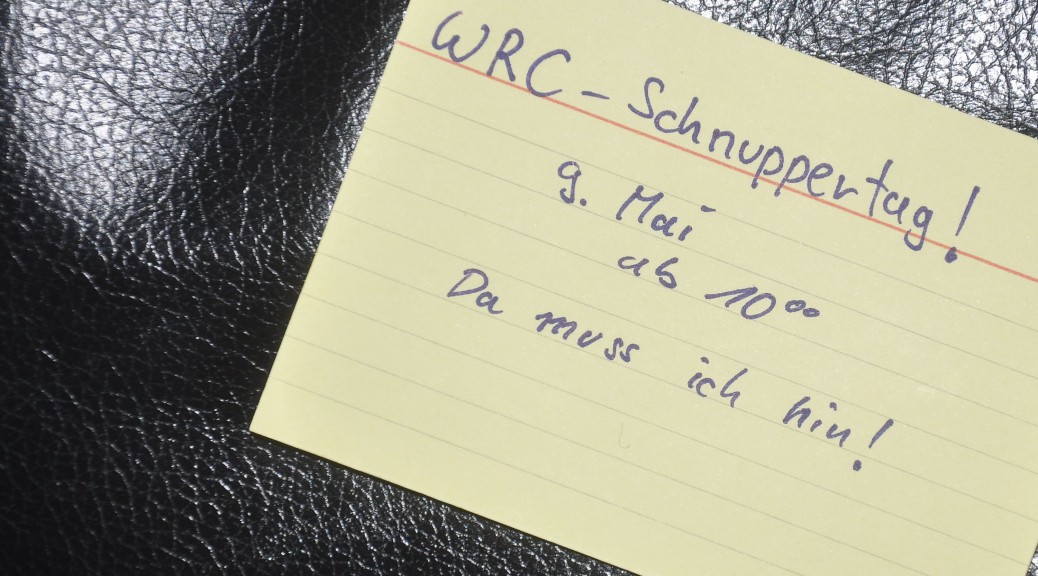 WRC - Schnuppertag!
9. Mai
ab 10⁰⁰
Da muss ich hin!